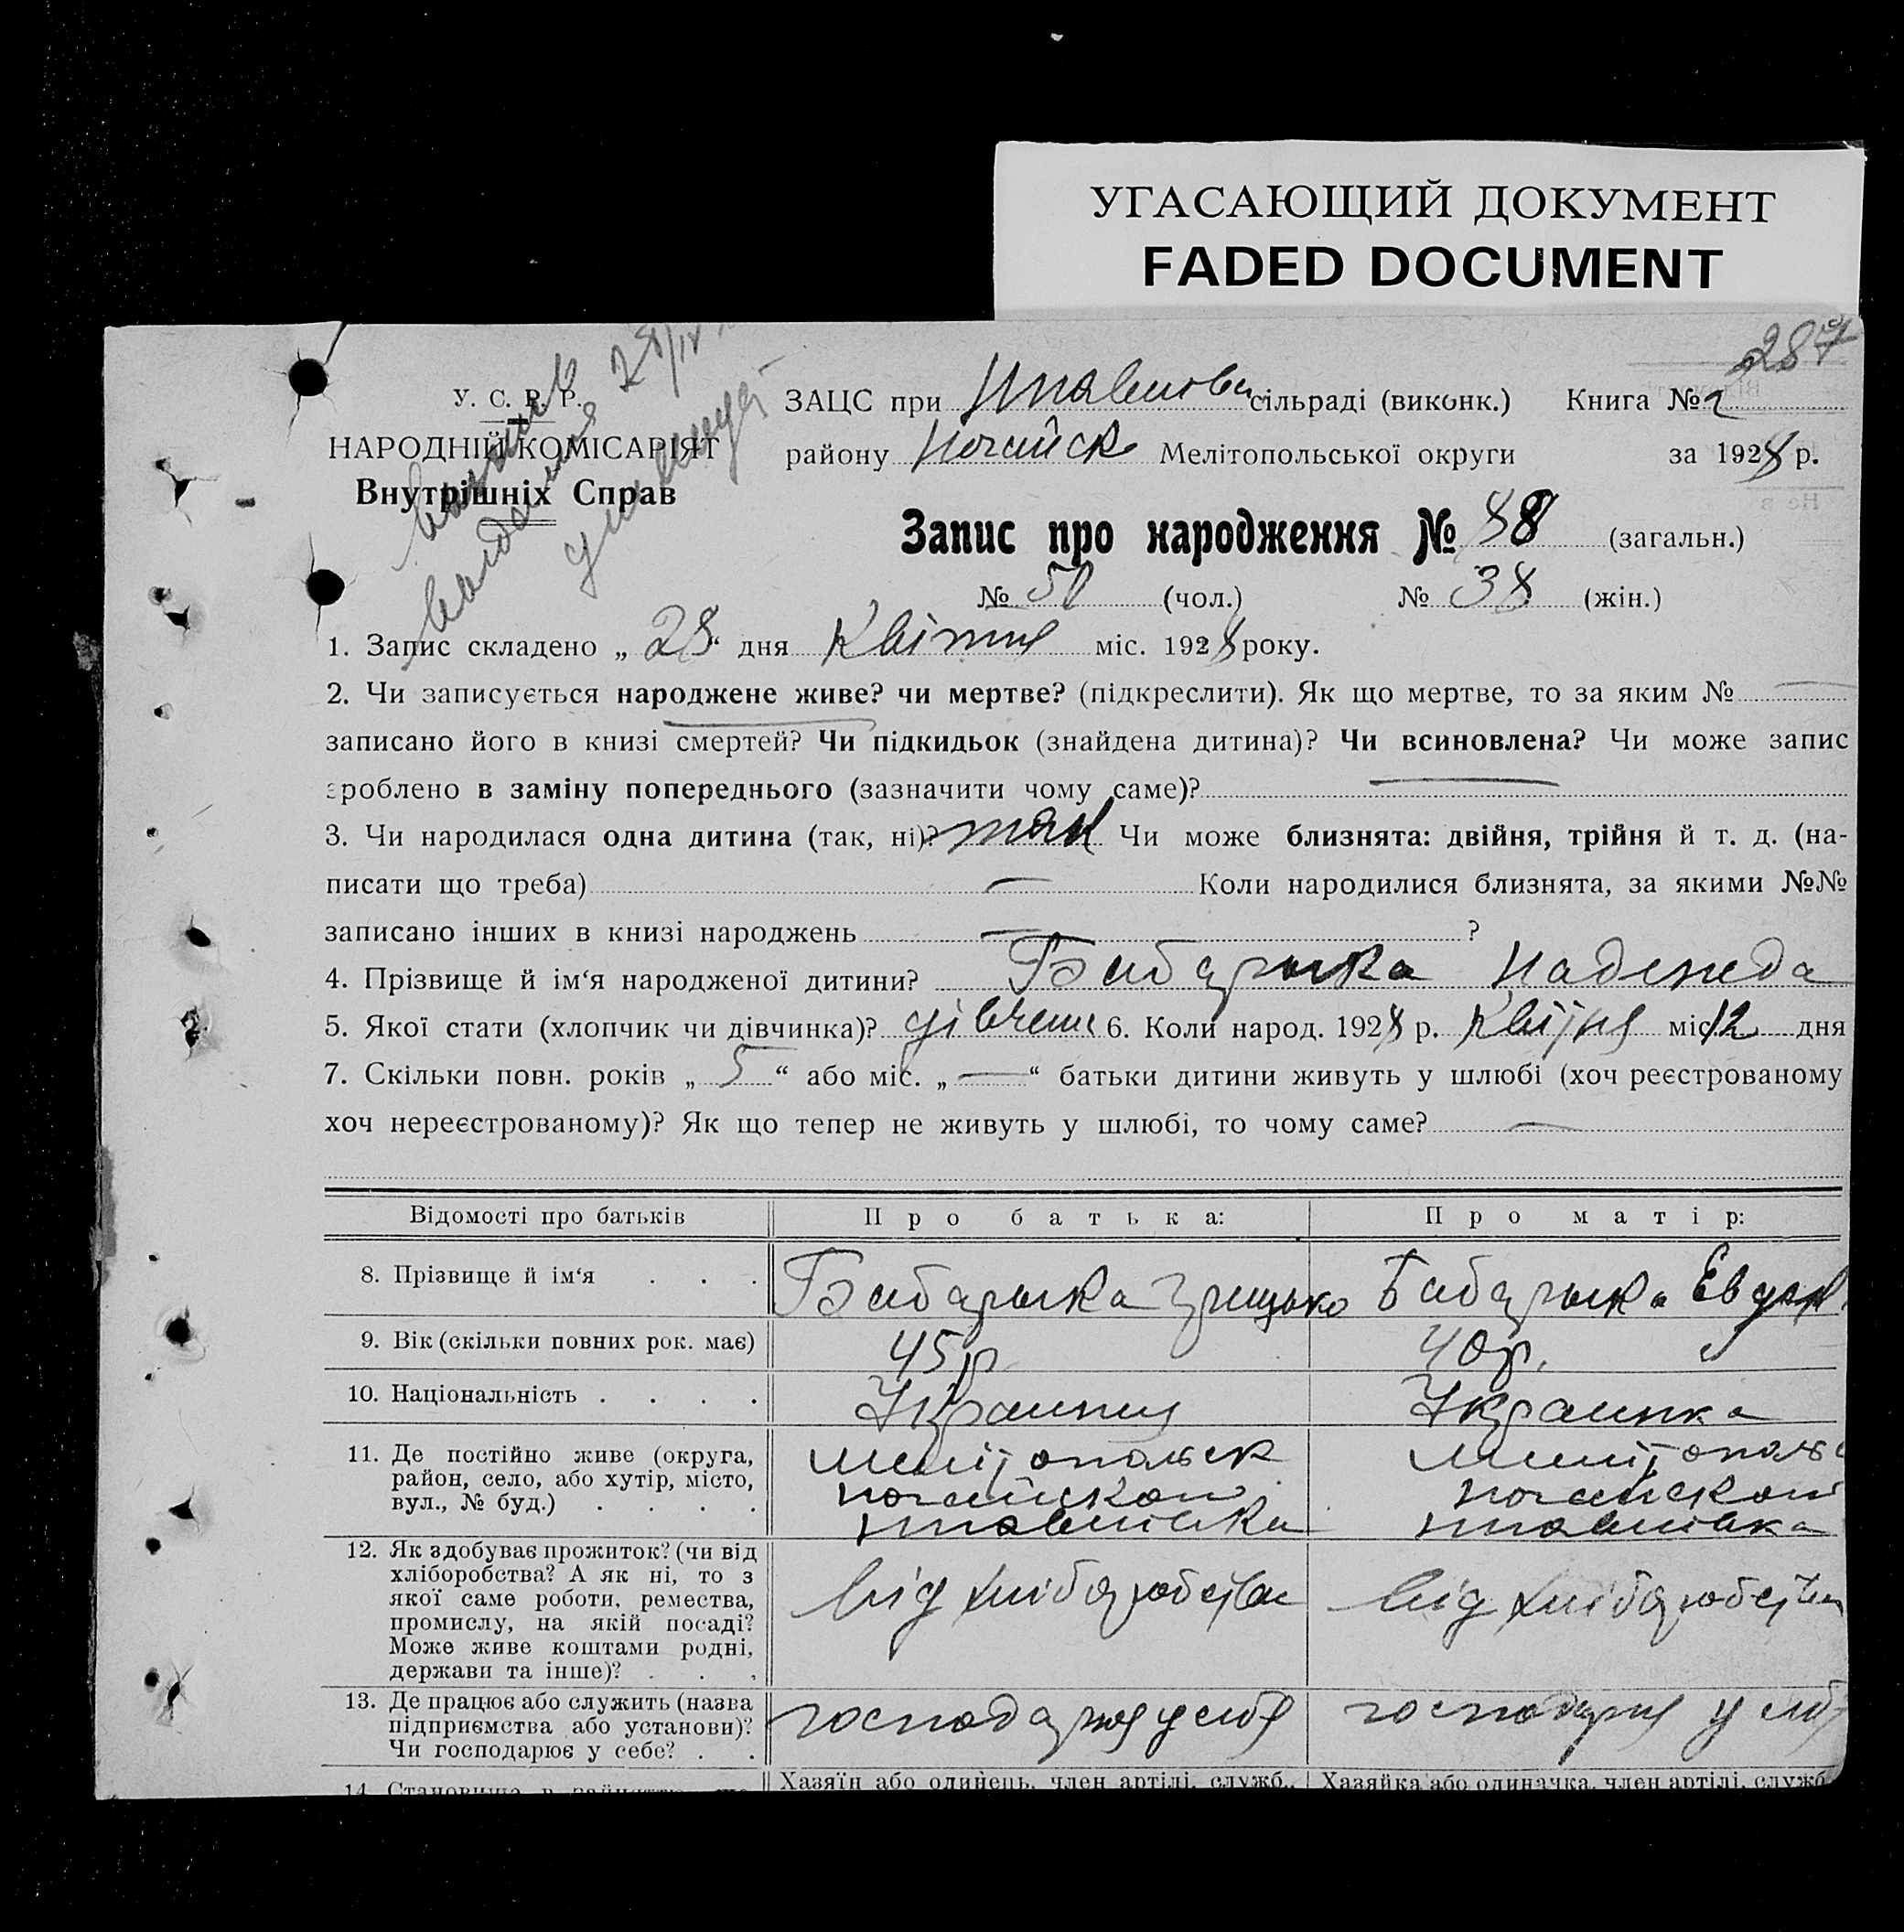 УГАСАЮЩИЙ ДОКУМЕНТ
FADED DOCUMENT
287
У. С. Р. Р.
НАРОДНІЙ КОМІСАРІЯТ
Внутрішніх Справ
ЗАЦС при сільраді (виконк.) Книга № 2
району Ногайск Мелітопольської округи за 1928 р.
Запис про народження № 88 (загальн.)
№ 50 (чол.) № 38 (жін.)
1. Запис складено „ 28 “ дня Квітня міс. 1928 року.
2. Чи записується народжене живе? чи мертве? (підкреслити). Як що мертве, то за яким № —
записано його в книзі смертей? Чи підкидьок (знайдена дитина)? Чи всиновлена? Чи може запис
зроблено в заміну попереднього (зазначити чому саме)? —
3. Чи народилася одна дитина (так, ні)? так Чи може близнята: двійня, трійня й т. д. (на-
писати що треба) — Коли народилися близнята, за якими №№
записано інших в книзі народжень — ?
4. Прізвище й ім‘я народженої дитини? Бабарыка Надежда
5. Якої стати (хлопчик чи дівчинка)? 6. Коли народ. 1928 р. Квітня міс. 12 дня
7. Скільки повн. років „ 5 “ або міс. „ — “ батьки дитини живуть у шлюбі (хоч реєстрованому
хоч нереєстрованому)? Як що тепер не живуть у шлюбі, то чому саме? —
Відомості про батьків Про батька: Про матір:
8. Прізвище й ім‘я . . . Бабарыка Грицько Бабарыка Евдок
9. Вік (скільки повних рок. має) 45 р. 40 р.
10. Національність . . . . Украинец Украинка
11. Де постійно живе (округа,
район, село, або хутір, місто,
вул., № буд.) . . . .
Мелітопольск Мелітопольс
12. Як здобуває прожиток? (чи від
хліборобства? А як ні, то з
якої саме роботи, ремества,
промислу, на якій посаді?
Може живе коштами родні,
держави та інше)? . . .
від хліборобства від хліборобства
13. Де працює або служить (назва
підприємства або установи)?
Чи господарює у себе? . .
господарює у себе у себе
14. Становище в занятті, що
Хазяїн або одинець, член артілі, служб., Хазяйка або одиначка, член артілі, служб.